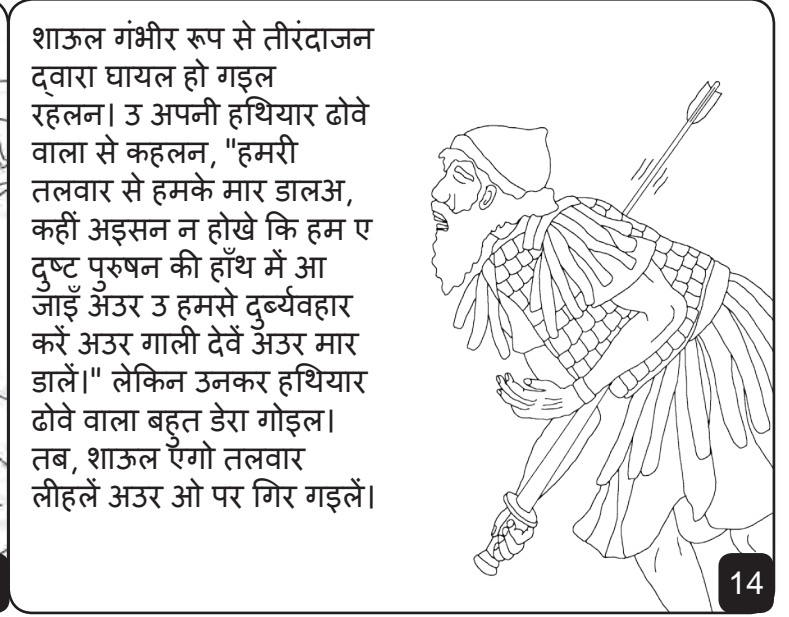 शाऊल गंभीर रूप से तीरंदाजन
द्वारा घायल हो गइल
रहलन। उ अपनी हथियार ढोवे
वाला से कहलन, "हमरी
तलवार से हमके मार डालअ,
कहीं अइसन न होखे कि हम ए
दुष्ट पुरुषन की हाँथ में आ
जाइँ अउर उ हमसे दुर्ब्यवहार
करें अउर गाली देवें अउर मार
डालें।" लेकिन उनकर हथियार
ढोवे वाला बहुत डेरा गोइल।
तब, शाऊल एगो तलवार
लीहलें अउर ओ पर गिर गइलें।
14